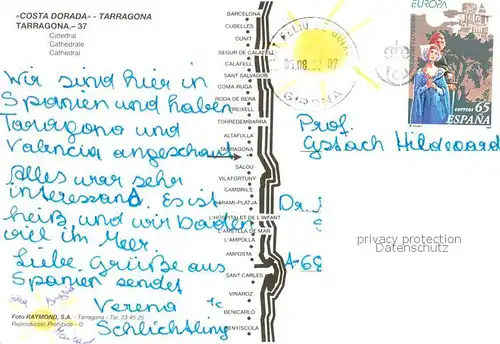 «COSTA DORADA» - TARRAGONA
TARRAGONA.- 37
Catedral
Cathédrale
Cathedral
Wir sind hier in
Spanien und haben
Tarragona und
Valencia angeschaut.
Alles war sehr
interessand. Es ist
heiß und wir baden
viel im Meer.
Liebe Grüße aus
Spanien sendet
Verena
Schlichtling
Foto RAYMOND, S.A. - Tarragona - Tel. 23 45 25
Reproducció Prohibida ©
BARCELONA
CUBELLES
CUNIT
SEGUR DE CALAFELL
CALAFELL
SANT SALVADOR
COMA-RUGA
RODA DE BERA
CREIXELL
TORREDEMBARRA
ALTAFULLA
TARRAGONA
SALOU
VILAFORTUNY
CAMBRILS
MIAMI-PLATJA
L'HOSPITALET DE L'INFANT
L'AMETLLA DE MAR
L'AMPOLLA
AMPOSTA
SANT CARLES
VINAROZ
BENICARLÓ
PENYISCOLA
GIRONA
EUROPA
correos 65
ESPAÑA
Prof.
Gstach Hildegard
Dr.
A-68
privacy protection
Datenschutz